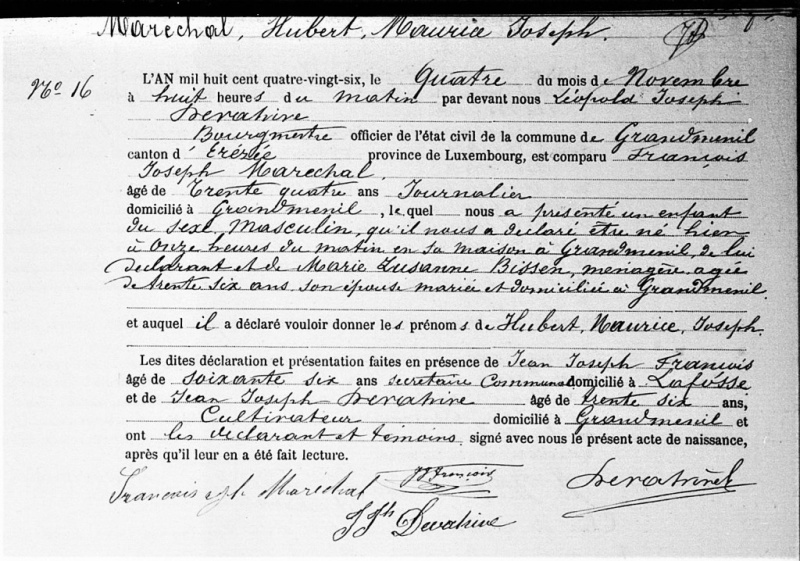 Maréchal, Hubert, Maurice Joseph.
No 16
L'AN mil huit cent quatre-vingt-six, le Quatre du mois de Novembre
à huit heures du matin par devant nous Léopold Joseph
Devahive
Bourgmestre officier de l'état civil de la commune de Grandmenil
canton d'Erézée province de Luxembourg, est comparu François
Joseph Marechal.
âgé de Trente quatre ans Journalier
domicilié à Grandmenil, lequel nous a présenté un enfant
du sexe Masculin, qu'il nous a déclaré être né hier
à Onze heures du matin en sa maison à Grandmenil, de lui
declarant et de Marie Susanne Bissen, menagère, agée
de trente six ans, son épouse mariée et domiciliée à Grandmenil.
et auquel il a déclaré vouloir donner les prénoms de Hubert, Maurice, Joseph.
Les dites déclaration et présentation faites en présence de Jean Joseph François
âgé de soixante six ans secretaire Communal domicilié à Lafosse
et de Jean Joseph Devahive âgé de trente six ans,
Cultivateur domicilié à Grandmenil et
ont les declarant et témoins signé avec nous le présent acte de naissance,
après qu'il leur en a été fait lecture.
François Jph Maréchal JJ François
JJph Devahive